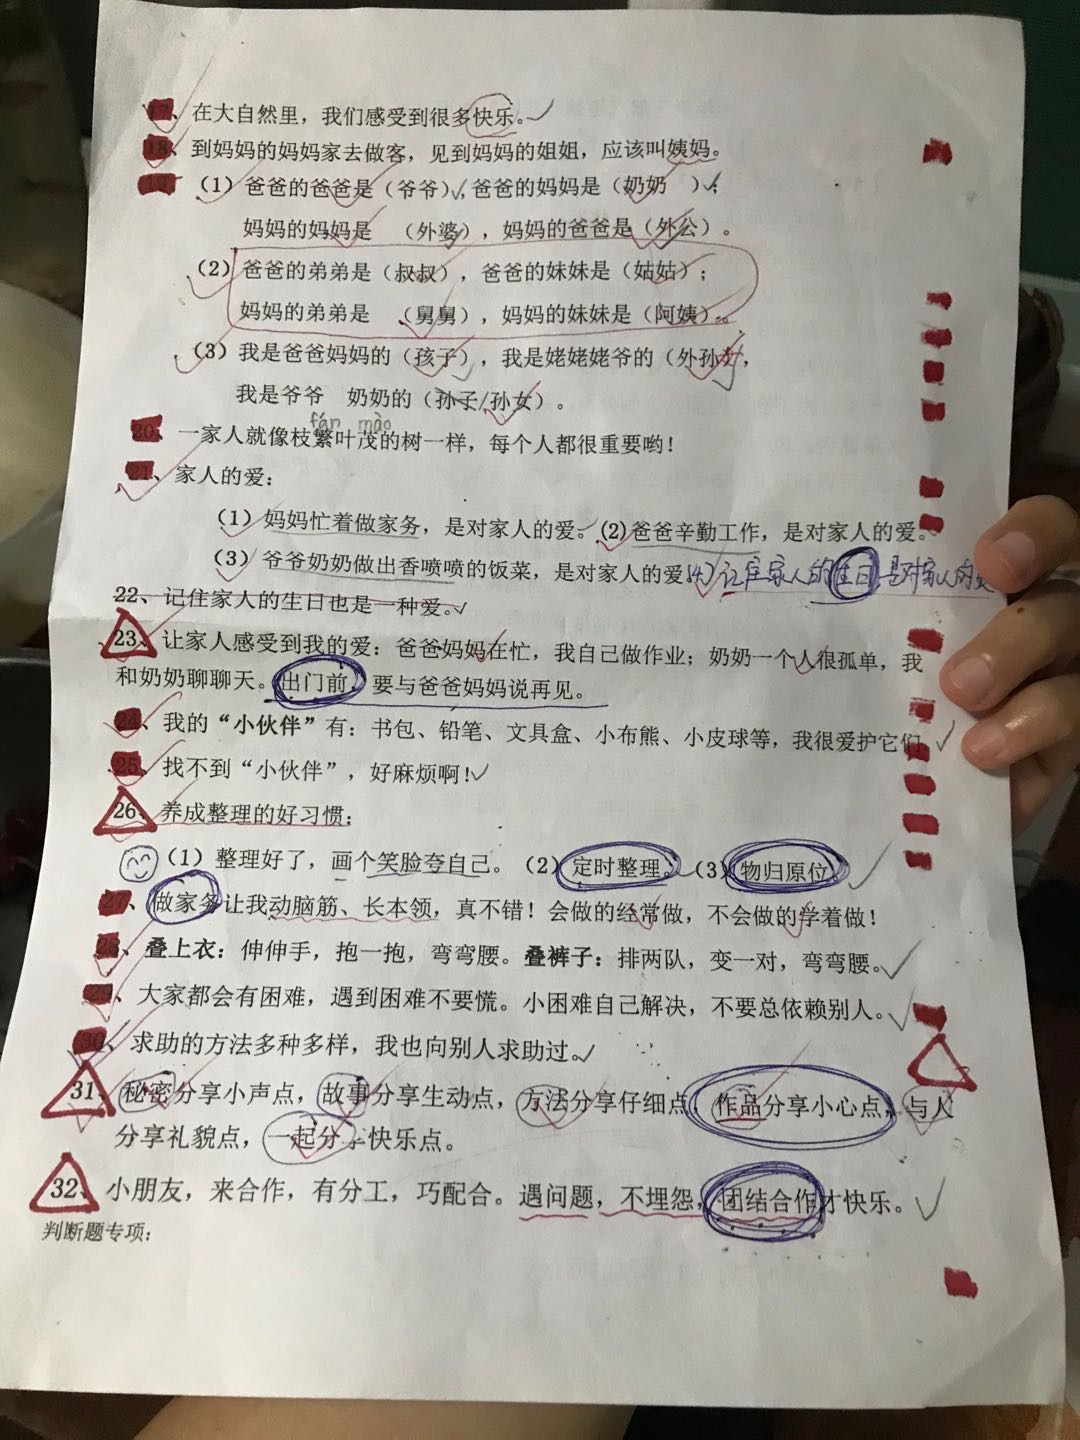 17、在大自然里，我们感受到很多快乐。
18、到妈妈的妈妈家去做客，见到妈妈的姐姐，应该叫姨妈。
19、（1）爸爸的爸爸是（爷爷），爸爸的妈妈是（奶奶 ）；
妈妈的妈妈是 （外婆），妈妈的爸爸是（外公）。
（2）爸爸的弟弟是（叔叔），爸爸的妹妹是（姑姑）；
妈妈的弟弟是 （舅舅），妈妈的妹妹是（阿姨）。
（3）我是爸爸妈妈的（孩子），我是姥姥姥爷的（外孙女，
我是爷爷 奶奶的（孙子/孙女）。
fán mào
20、一家人就像枝繁叶茂的树一样，每个人都很重要哟！
21、家人的爱：
（1）妈妈忙着做家务，是对家人的爱。(2)爸爸辛勤工作，是对家人的爱。
（3）爷爷奶奶做出香喷喷的饭菜，是对家人的爱(4)记住家人的生日是对家人的爱
22、记住家人的生日也是一种爱。
23、让家人感受到我的爱：爸爸妈妈在忙，我自己做作业；奶奶一个人很孤单，我
和奶奶聊聊天。出门前，要与爸爸妈妈说再见。
24、我的“小伙伴”有：书包、铅笔、文具盒、小布熊、小皮球等，我很爱护它们
25、找不到“小伙伴”，好麻烦啊！
26、养成整理的好习惯：
（1）整理好了，画个笑脸夸自己。（2）定时整理。（3）物归原位
27、做家务让我动脑筋、长本领，真不错！会做的经常做，不会做的学着做！
28、叠上衣：伸伸手，抱一抱，弯弯腰。叠裤子：排两队，变一对，弯弯腰。
29、大家都会有困难，遇到困难不要慌。小困难自己解决，不要总依赖别人。
30、求助的方法多种多样，我也向别人求助过。
31、秘密分享小声点，故事分享生动点，方法分享仔细点，作品分享小心点，与人
分享礼貌点，一起分享快乐点。
32、小朋友，来合作，有分工，巧配合。遇问题，不埋怨，团结合作才快乐。
判断题专项：